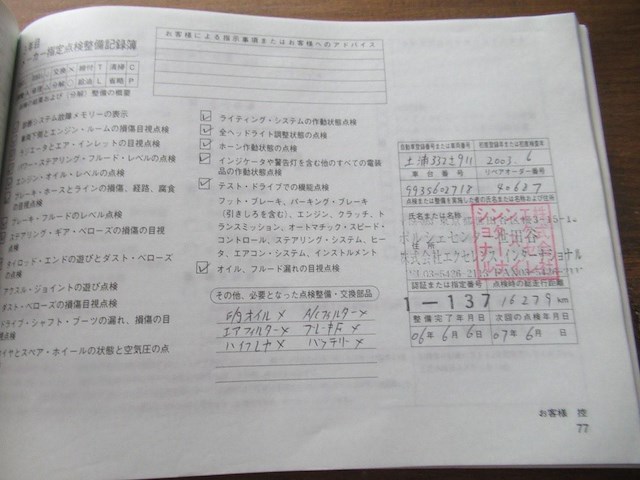 年目
メーカー指定点検整備記録簿
交換 × 締付 T 清掃 C
分解 ○ 給油 L 省略 P
整備の概要
お客様による指示事項またはお客様へのアドバイス
故障メモリーの表示
車両下側とエンジン・ルームの損傷目視点検
ラジエータとエア・インレットの目視点検
パワー・ステアリング・フルード・レベルの点検
エンジン・オイル・レベルの点検
ブレーキ・ホースとラインの損傷、経路、腐食
の目視点検
ブレーキ・フルードのレベル点検
ステアリング・ギア・ベローズの損傷の目
視点検
タイロッド・エンドの遊びとダスト・ベローズ
の点検
アクスル・ジョイントの遊び点検
ダスト・ベローズの損傷目視点検
ドライブ・シャフト・ブーツの漏れ、損傷の目
視点検
タイヤとスペア・ホイールの状態と空気圧の点
ライティング・システムの作動状態点検
全ヘッドライト調整状態の点検
ホーン作動状態の点検
インジケータや警告灯を含む他のすべての電装
品の作動状態点検
テスト・ドライブでの機能点検
フット・ブレーキ、パーキング・ブレーキ
(引きしろを含む)、エンジン、クラッチ、ト
ランスミッション、オートマチック・スピー
ド・コントロール、ステアリング・システム、ヒー
タ、エアコン・システム、インストルメント
オイル、フルード漏れの目視点検
その他、必要となった点検整備・交換部品
オイル × A/Cフィルター×
エアフィルター× ブレーキ
× バッテリー×
自動車登録番号または車両番号 初度登録年または初度検査年
土浦332さ911 2003. 6
車台番号 リペアオーダー番号
993S602718 40627
点検または整備を実施した者の氏名または名称および住所
氏名または名称
住所
ポルシェセンター世田谷
株式会社エクセルス・インターナショナル
認証または指定番号 点検時の総走行距離
1-137 16279 km
整備完了年月日 次回の点検年月日
06年 6月 6日 07年 6月 日
お客様 控
77